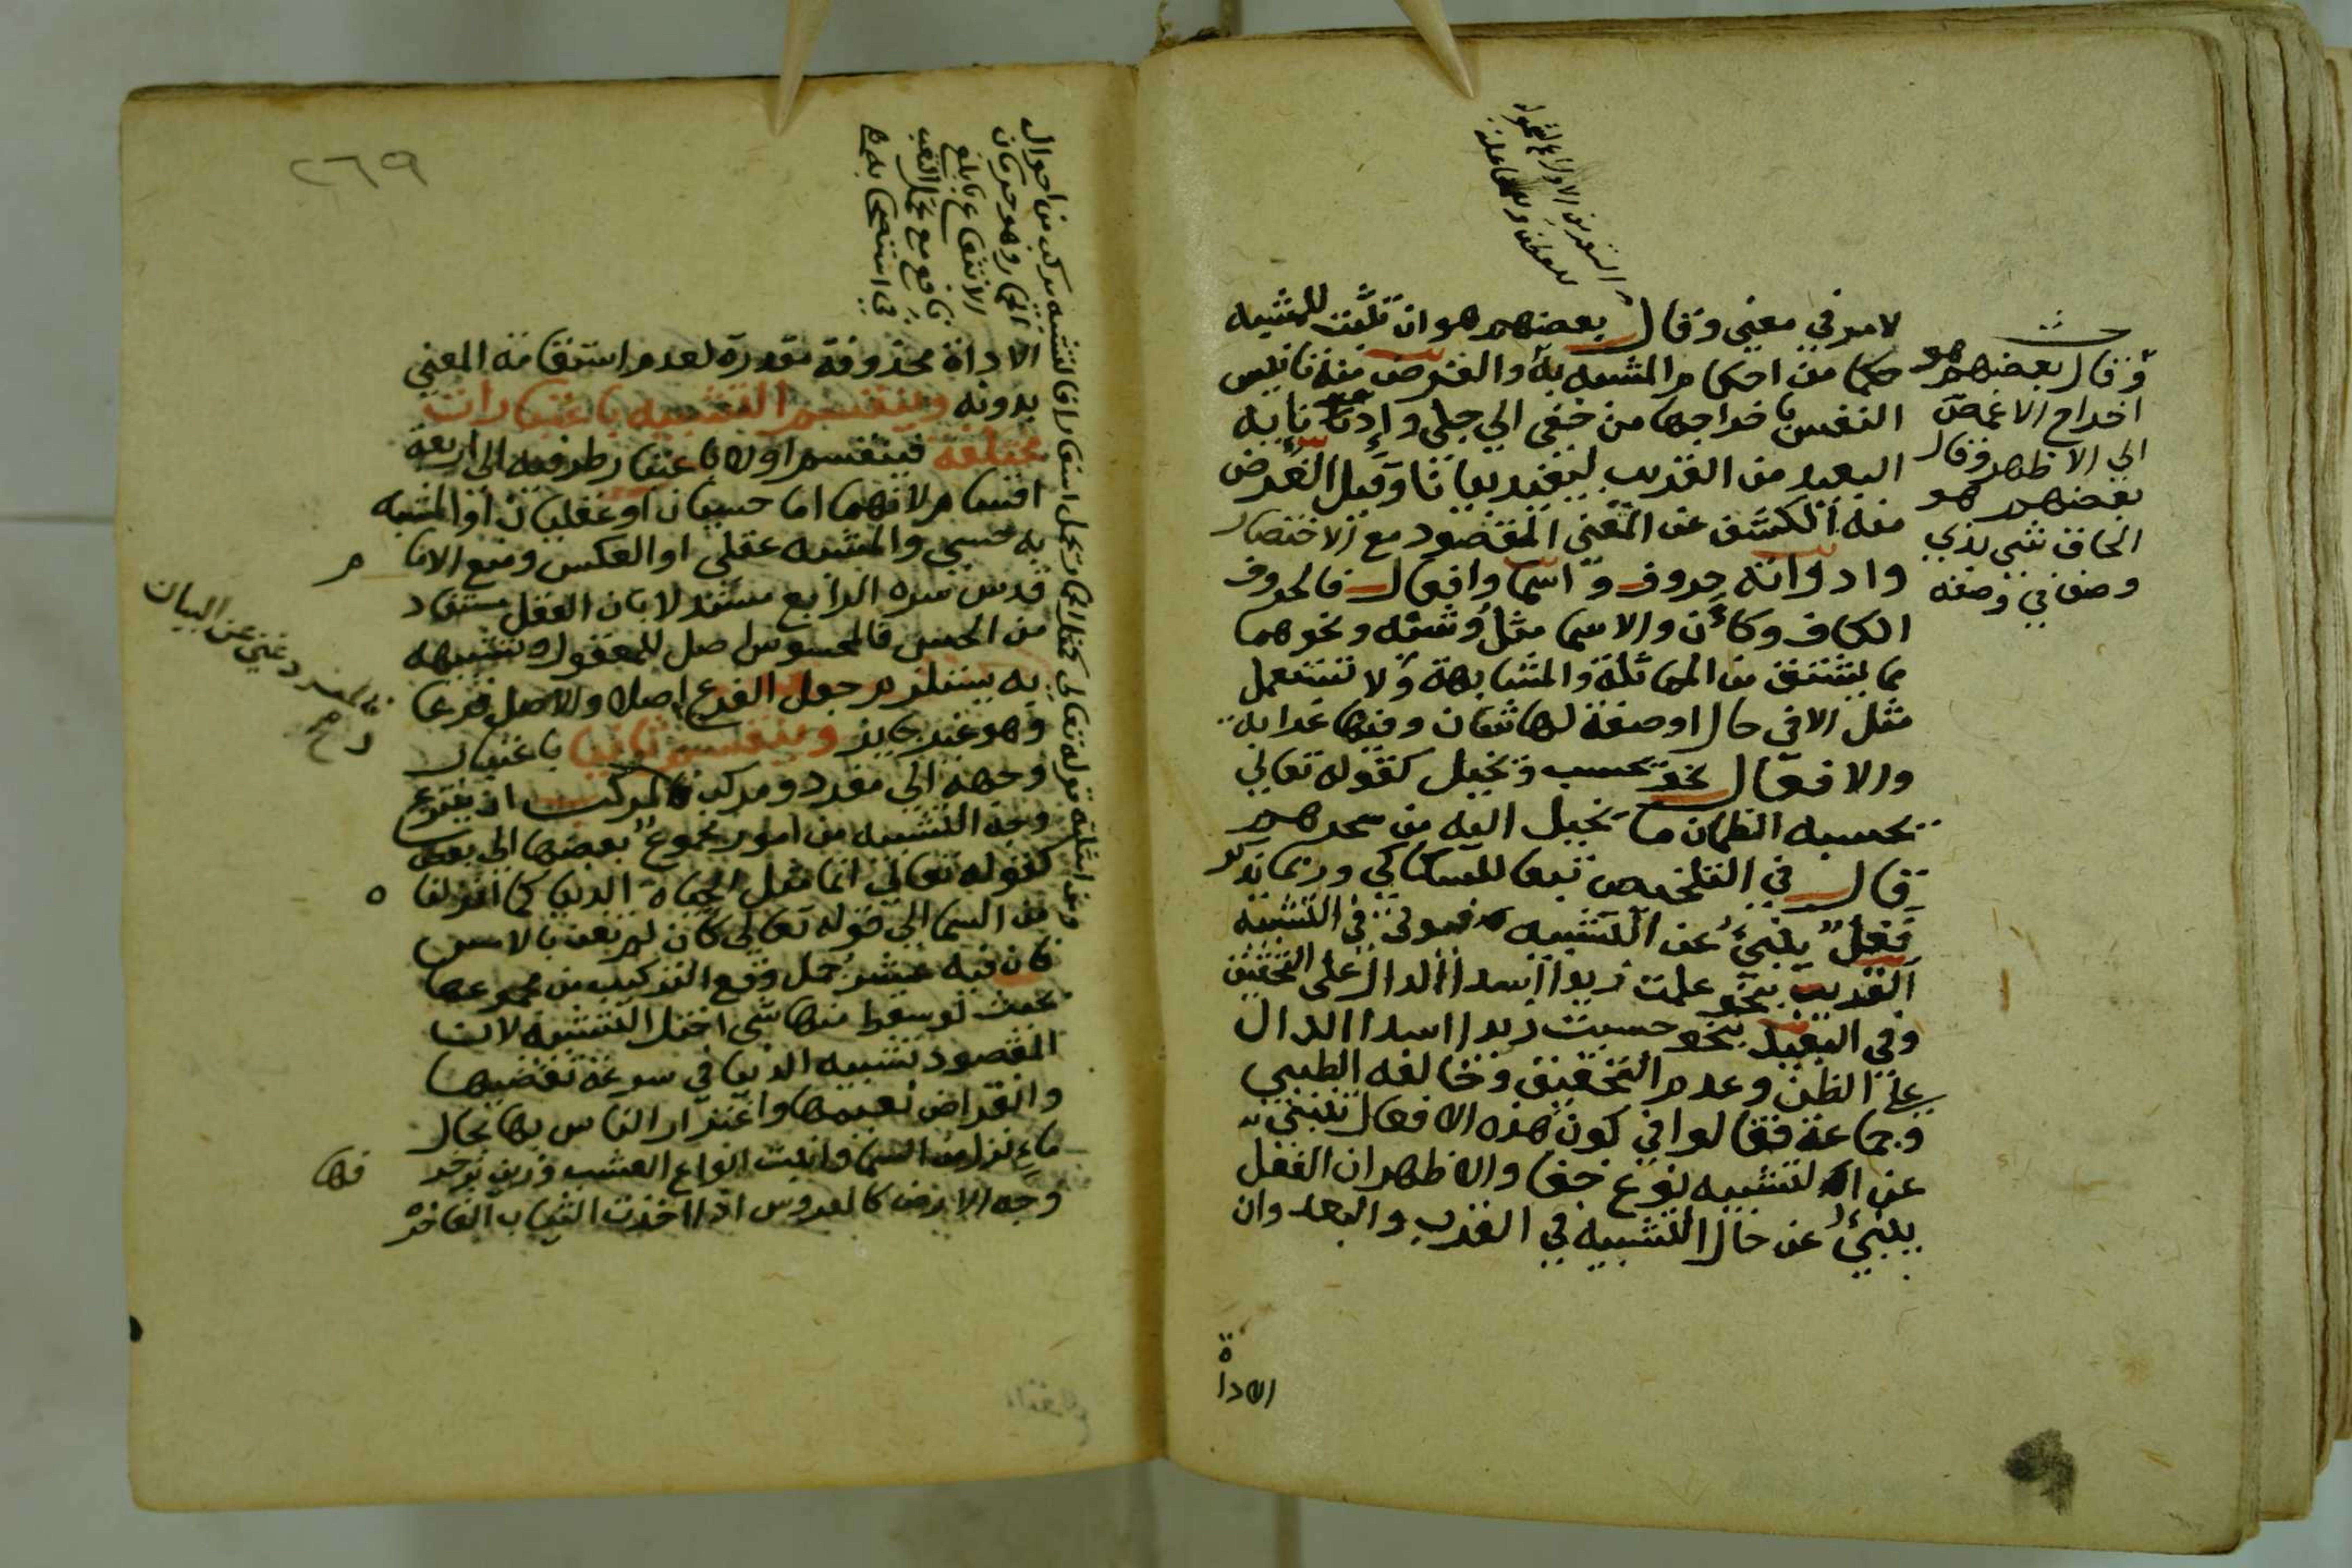 لامر في معني وقال بعضهم هو ان تثبت للمشبه
حكما من احكام المشبه به والغرض منه تانيس
النفس باخراجها من خفي الي جلي وإدناىه
البعيد من القريب ليفيد بيانا وقيل الغرض
منه الكشف عن المعني المقصود مع الاختصار
وادواته حروف واسما وافعال فالحروف
الكاف وكأن والاسما مثل وشبه ونحوهما
مما يشتق من المماثلة والمشابهة ولا تستعمل
مثل الا في حال او صفة لها شان وفيها غرابه
والافعال نحو تحسب وتخيل كقوله تعالي
تحسبه الظمان ما يخيل اليه من سحرهم
قال في التلخيص تبعا للسكاكي وربما يذكر
فعل ينبئ عن التشبيه فيوتي في التشبيه
القريب بنحو علمت زيدا اسدا الدال علي التحقيق
وفي البعيد بنحو حسبت زيدا اسدا الدال
علي الظن وعدم التحقيق وخالفه الطيبي
وجماعة فقالوا في كون هذه الافعال تنبئ
عن التشبيه نوع خفا والاظهر ان الفعل
ينبئ عن حال التشبيه في القرب والبعد وان
الاداة
وقال بعضهم هو
اخراج الاغمض
الي الاظهر وقال
بعضهم هو
الحاق شي بذي
وصف في وصفه
٢٦٩
الاداة محذوفة مقدرة لعدم استقامة المعني
بدونه وينقسم التشبيه باعتبارات
مختلفة فينقسم اولا باعتبار طرفيه الي اربعة
اقسام لانهما اما حسيان او عقليان او المشبه
به حسي والمشبه عقلي او العكس ومنع الاما م
قدس سره الرابع مستدلا بان العقل مستفاد
من الحس فالمحسوس اصل للمعقول وتشبيهه
به يستلزم جعل الفرع اصلا والاصل فرعا
وهو غير جايز وينقسم ثانيا باعتبار
وجهه الي مفرد ومركب فالمركب ان ينتزع
وجه التشبيه من امور مجموع بعضها الي بعض
كقوله تعالي انما مثل الحياة الدنيا كما انزلناه
من السما الي قوله تعالي كان لم تغن بالامس
فان فيه عشر جمل وقع التركيب من مجموعها
بحيث لو سقط منها شي اختل التشبيه لان
المقصود تشبيه الدنيا في سرعة تقضيها
وانقراض نعيمها واغترار الناس بها بحال
ماء نزل من السما وانبت انواع العشب وزين بزخرفها
وجه الارض كالعروس اذا اخذت الثياب الفاخرة